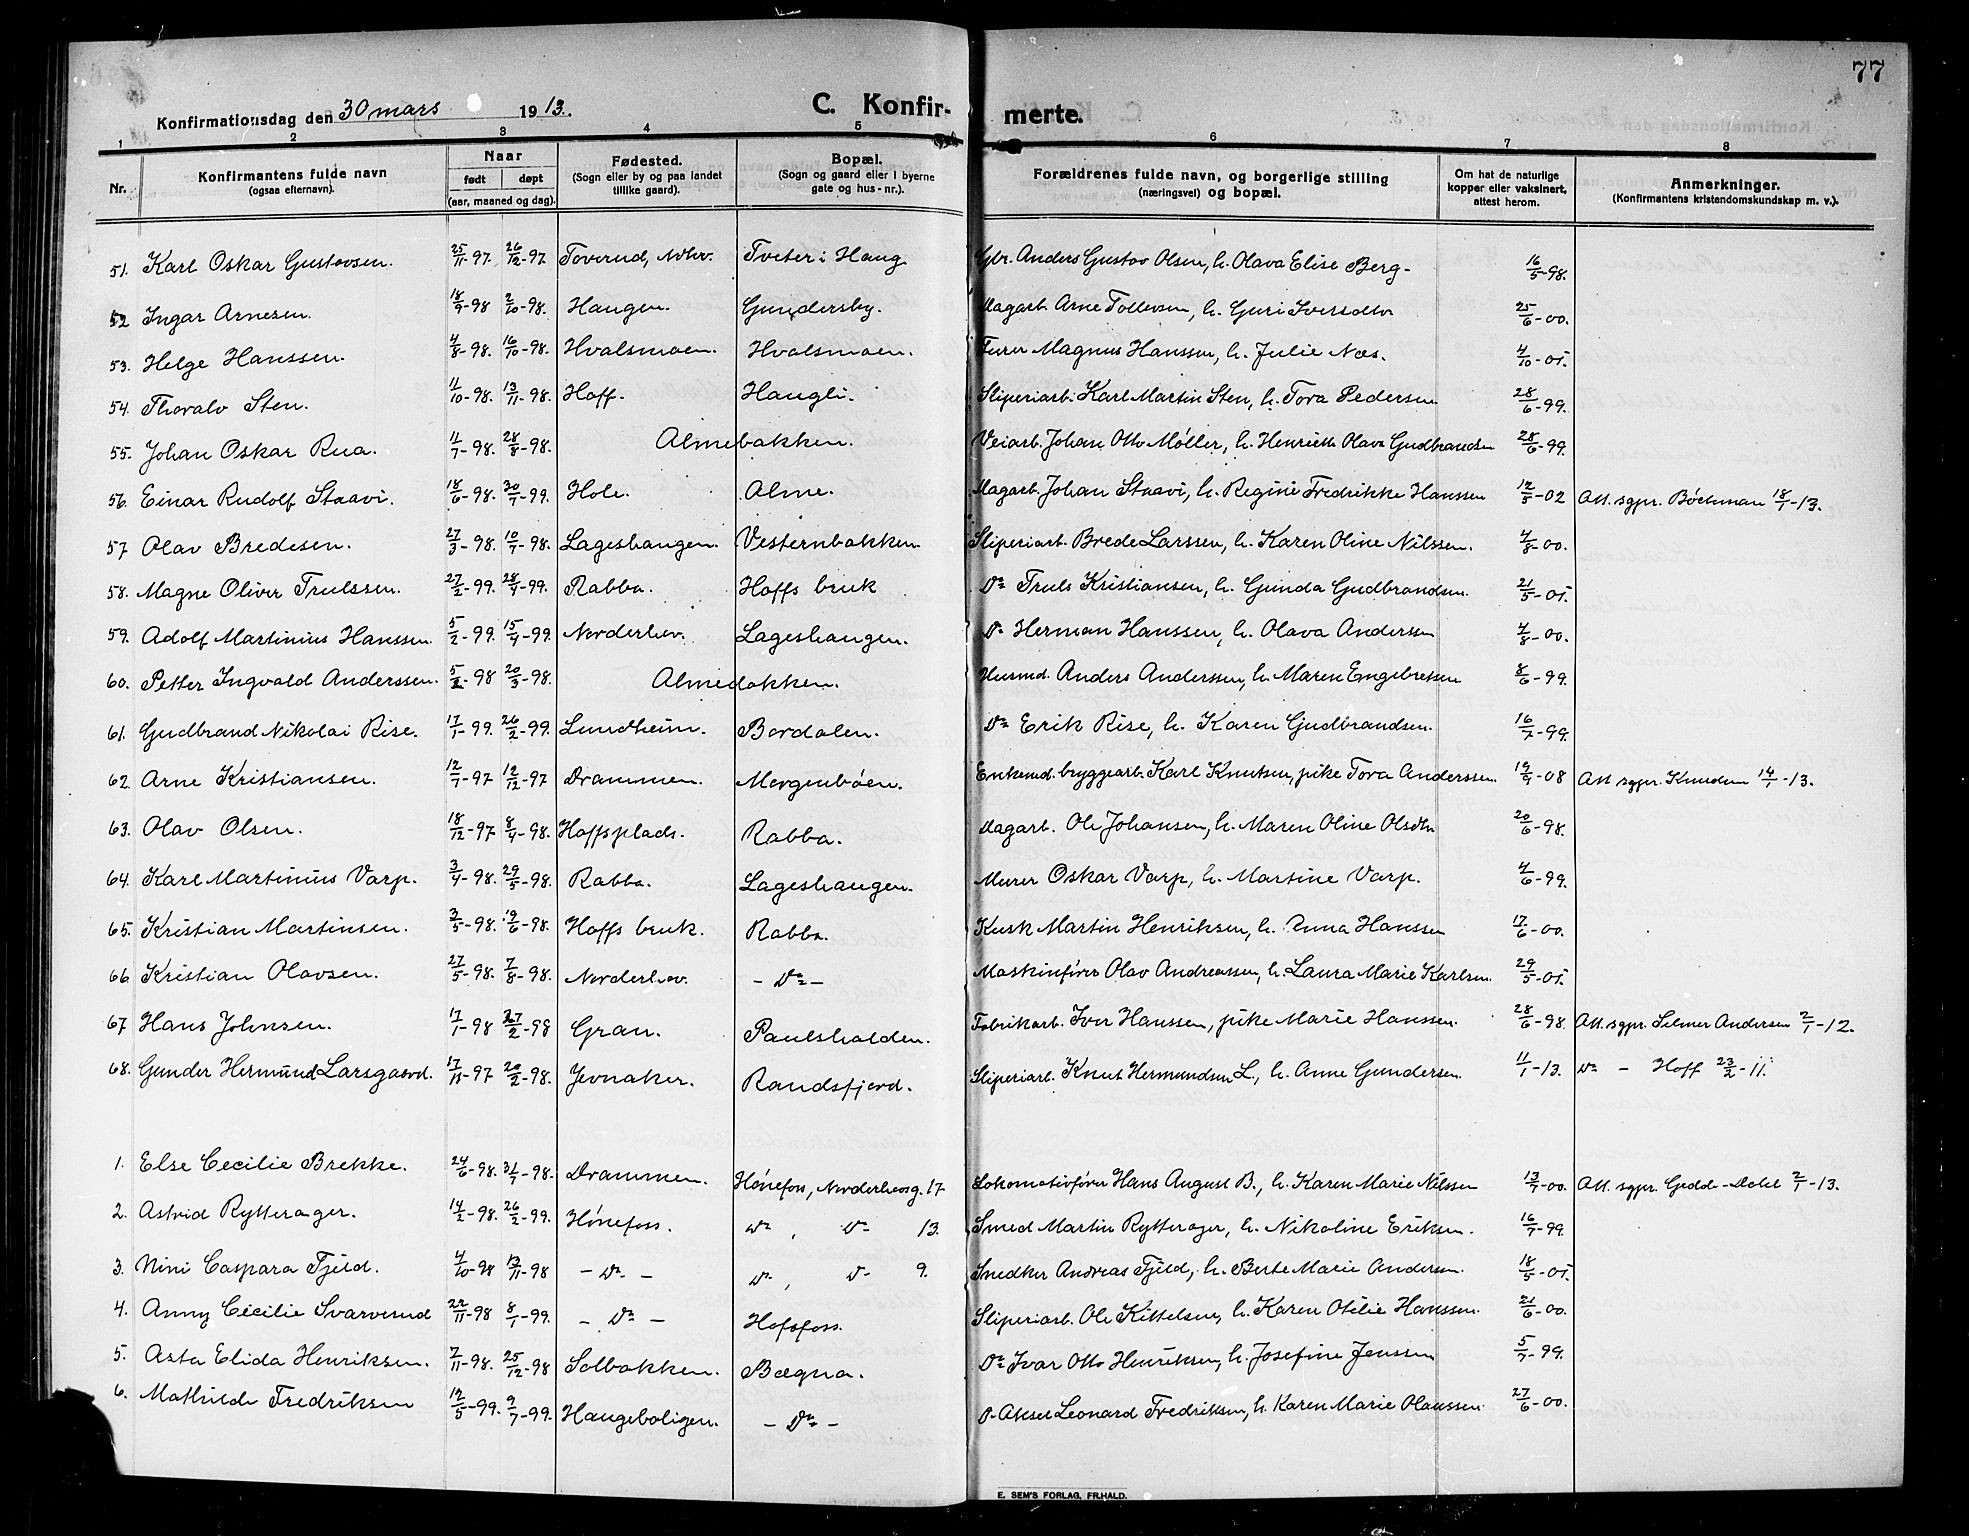 77
Konfirmationsdag den 30 mars 1913.
C. Konfirmerte.
1 2 3 4 5 6 7 8
Nr. Konfirmantens fulde navn (ogsaa efternavn). Naar født døpt (aar, maaned og dag). Fødested. (Sogn eller by og paa landet tillike gaard). Bopæl. (Sogn og gaard eller i byerne gate og hus-nr.). Forældrenes fulde navn, og borgerlige stilling (næringsvei) og bopæl. Om hat de naturlige kopper eller vaksinert, attest herom. Anmerkninger. (Konfirmantens kristendomskundskap m. v.).
51. Karl Oskar Gustavsen. 25/11-97. 26/12-97 Toverud, Ndhv. Tveter i Haug Gbr. Anders Gustav Olsen, h. Olava Elise Berg- 16/5-98.
52 Ingar Arnesen. 18/9-98 2/10-98. Haugen. Gundersby. Dagarb. Arne Tollevsen, h. Guri Iversdtr 25/6-00.
53. Helge Hanssen. 4/8-98. 16/10-98. Hvalsmoen. Hvalsmoen. Furer Magnus Hanssen, h. Julie Næs. 4/10-05.
54. Thoralv Sten. 11/10-98. 13/11-98. Hoff. Haugli. Sliperiarb. Karl Martin Sten, h. Tora Pedersen 28/6-99.
55. Johan Oskar Rua. 11/7-98. 28/8-98. Almebakken. Veiarb. Johan Otto Møller, h. Henriette Olava Gudbrandsen 28/6-99.
56. Einar Rudolf Staavi. 18/6-98. 30/7-99. Hole. Alme. Dagarb. Johan Staavi, h. Regine Fredrikke Hanssen 12/5-02 Att. sgpr. Bøckman 18/1-13.
57 Olav Bredesen. 27/3-98. 10/7-98. Lageshaugen. Vesternbakken Sliperiarb. Brede Larssen, h. Karen Oline Nilssen. 4/8-00.
58. Magne Oliver Trulssen. 27/2-99. 28/4-99. Rabba. Hoffs bruk Do Truls Kristiansen, h. Gunda Gudbrandsen. 21/5-05.
59. Adolf Martinius Hanssen. 5/2-99. 15/4-99. Norderhov. Lageshaugen. Do Herman Hanssen, h. Olava Anderssen 4/8-00.
60. Petter Ingvald Anderssen. 5/2-98 20/3-98. Almebakken. Husmd. Anders Anderssen, h. Maren Engebretsen 8/6-99.
61. Gudbrand Nikolai Rise. 17/1-99. 26/2-99. Lundheim. Bordalen. Do Erik Rise, h. Karen Gudbrandsen. 16/7-99.
62 Arne Kristiansen. 12/7-97 12/12-97 Drammen. Morgenbøen. Enkemd. bryggearb. Karl Knutsen, pike Tora Anderssen. 19/9-08 Att sgpr. Knudsen 14/1-13.
63. Olav Olsen. 18/12-97 8/4-98. Hoffsplads. Rabba. Dagarb. Ole Johansen, h. Maren Oline Olsdtr 20/6-98.
64. Karl Martinius Varp. 3/4-98. 29/5-98. Rabba. Lageshaugen. Murer Oskar Varp, h. Martine Varp. 4/6-99.
65. Kristian Martinsen. 3/5-98. 19/6-98. Hoffs bruk. Rabba. Kusk Martin Henriksen, h. Anna Hanssen 17/6-00.
66 Kristian Olavsen. 27/5-98. 7/8-98. Norderhov. - Do - Maskinfører Olav Andreassen, h. Laura Marie Karlsen. 29/5-05.
67 Hans Johnsen. 17/1-98 27/2-98 Gran. Paulshalden. Fabrikarb. Iver Hanssen, pike Marie Hanssen. 28/6-98. Att. sgpr. Selmer Andersen 2/1-12.
68. Gunder Hermund Larsgaard. 17/11-97 20/2-98. Jevnaker. Randsfjord. Sliperiarb. Knut Hermundsen L., h. Anne Gundersen. 11/1-13. Do - Hoff 23/2-11.
1. Else Cecilie Brekke. 24/6-98. 31/7-98. Drammen. Hønefoss, Norderhovsg. 17 Lokomotivfører Hans August B., h. Karen Marie Nilssen 13/7-00. Att. sgpr. Gedde-Dahl 2/1-13.
2. Astrid Rytterager. 14/2-98. 26/2-99. Hønefoss. Do, Do 13. Smed Martin Rytterager, h. Nikoline Eriksen. 16/7-99.
3. Nini Caspara Fjeld. 4/10-98 13/11-98 - Do - Do, Do 9. Snedker Andreas Fjeld, h. Berte Marie Andersen. 18/5-05.
4. Anny Cecilie Svarverud 22/11-98 8/1-99. - Do - Hofsfoss. Sliperiarb. Ole Kittelsen, h. Karen Otilie Hanssen. 21/6-00.
5. Asta Elida Henriksen. 7/11-98. 25/12-98 Solbakken. Bægna. Do Ivar Otto Henriksen, h. Josefine Jenssen 5/7-99.
6. Mathilde Fredriksen 12/5-99. 9/7-99. Haugeboligen. - Do - D. Aksel Leonard Fredriksen, h. Karen Marie Olaussen 27/6-00.
E. SEM'S FORLAG, FR.HALD.